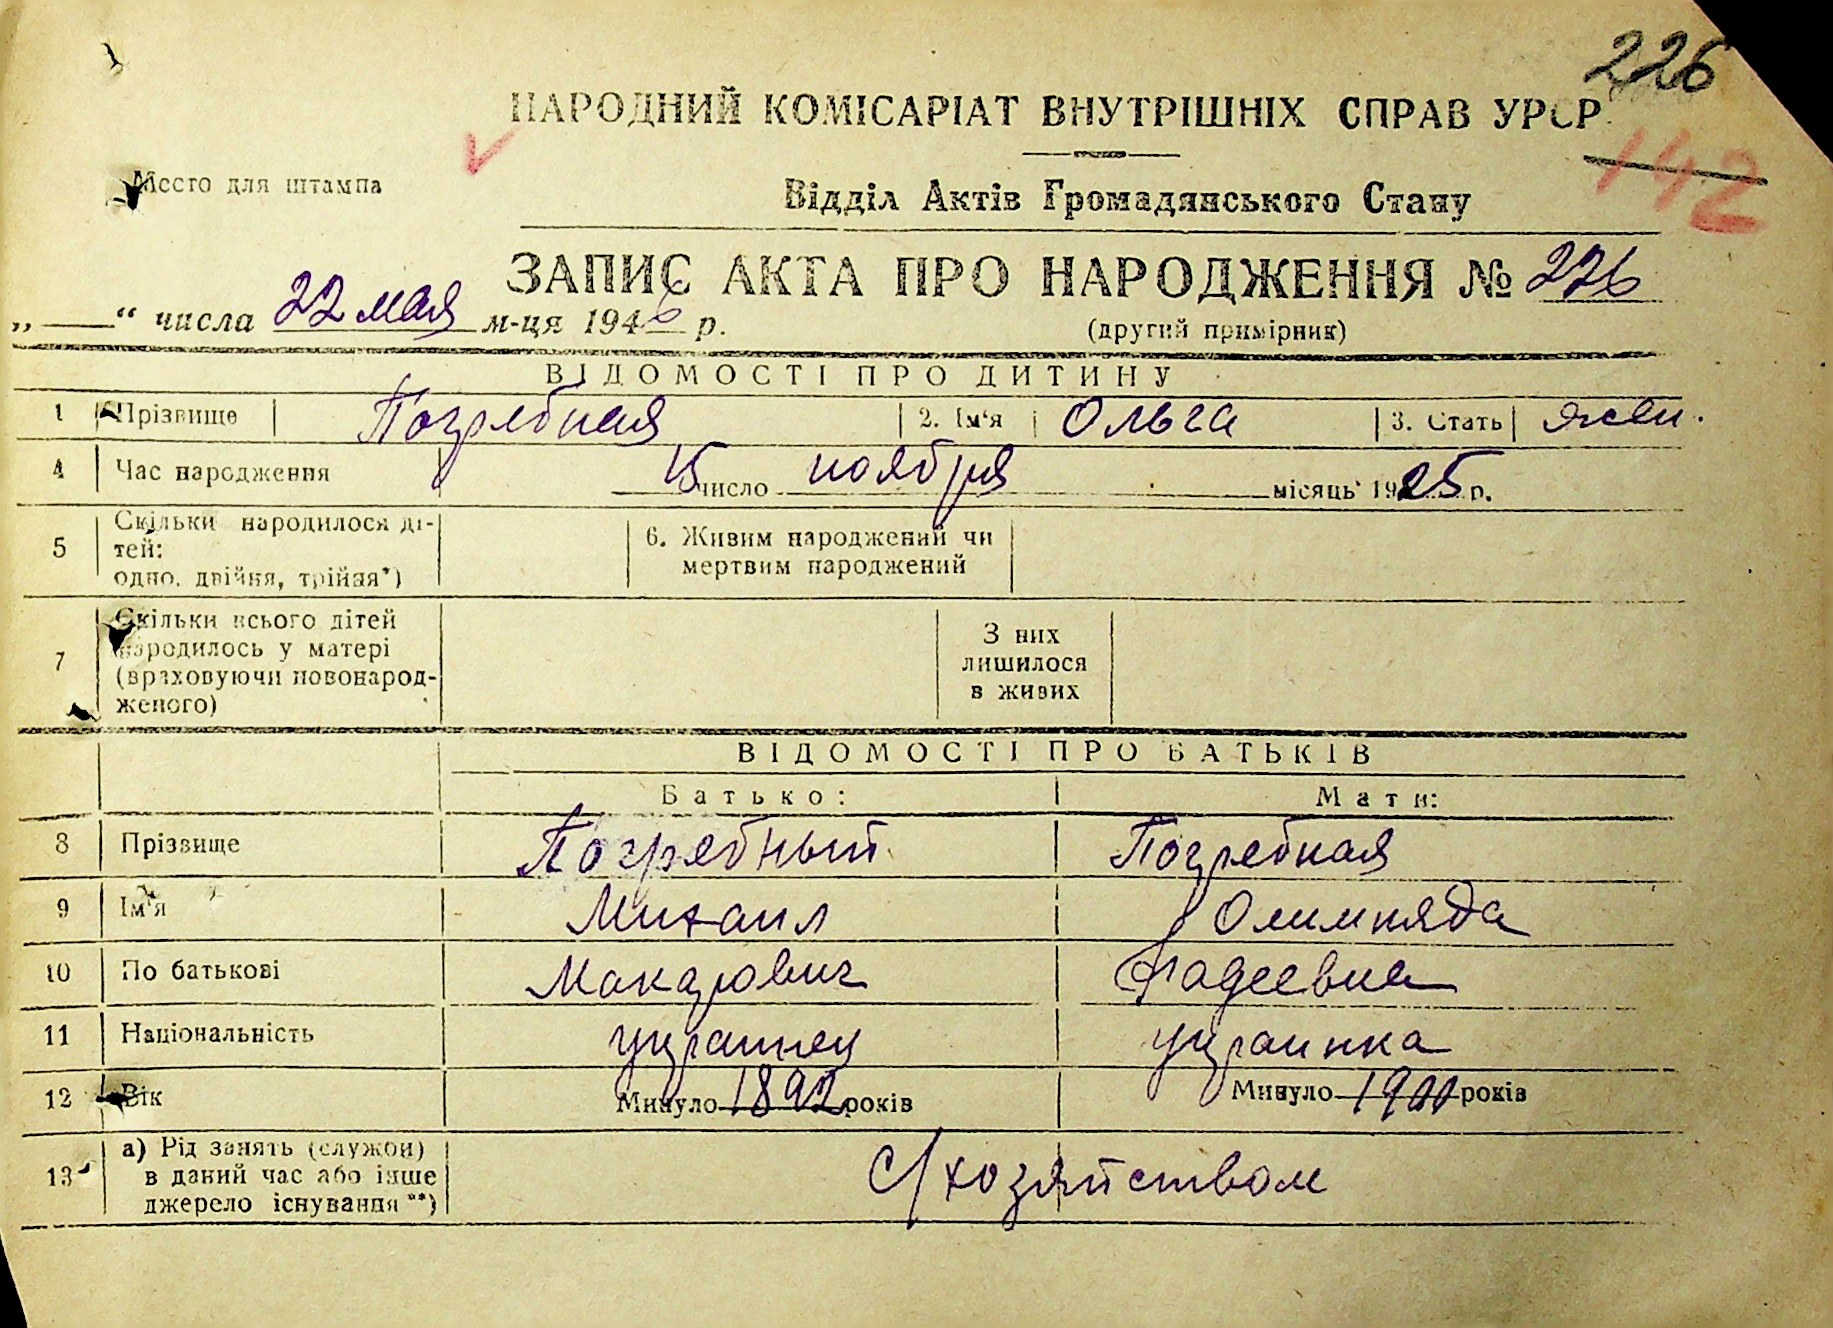 226
НАРОДНИЙ КОМІСАРІАТ ВНУТРІШНІХ СПРАВ УРСР
142
Место для штампа
Відділ Актів Громадянського Стану
ЗАПИС АКТА ПРО НАРОДЖЕННЯ № 276
„ — “ числа 22 мая м-ця 1946 р.
(другий примірник)
ВІДОМОСТІ ПРО ДИТИНУ
1 Прізвище Погребная 2. Ім'я Ольга 3. Стать жен.
4 Час народження 15 число ноября місяць 1925 р.
5 Скільки народилося ді-
тей:
одно, двійня, трійня*)
6. Живим народжений чи
мертвим народжений
7 Скільки всього дітей
народилось у матері
(враховуючи новонарод-
женого)
З них
лишилося
в живих
ВІДОМОСТІ ПРО БАТЬКІВ
Батько: Мати:
8 Прізвище Погребный Погребная
9 Ім'я Михаил Олимпяда
10 По батькові Макарович Фадеевна
11 Національність украинец украинка
12 Вік Минуло 1892 років Минуло 1900 років
13 а) Рід занять (служби)
в даний час або інше
джерело існування **)
с/хозяйством